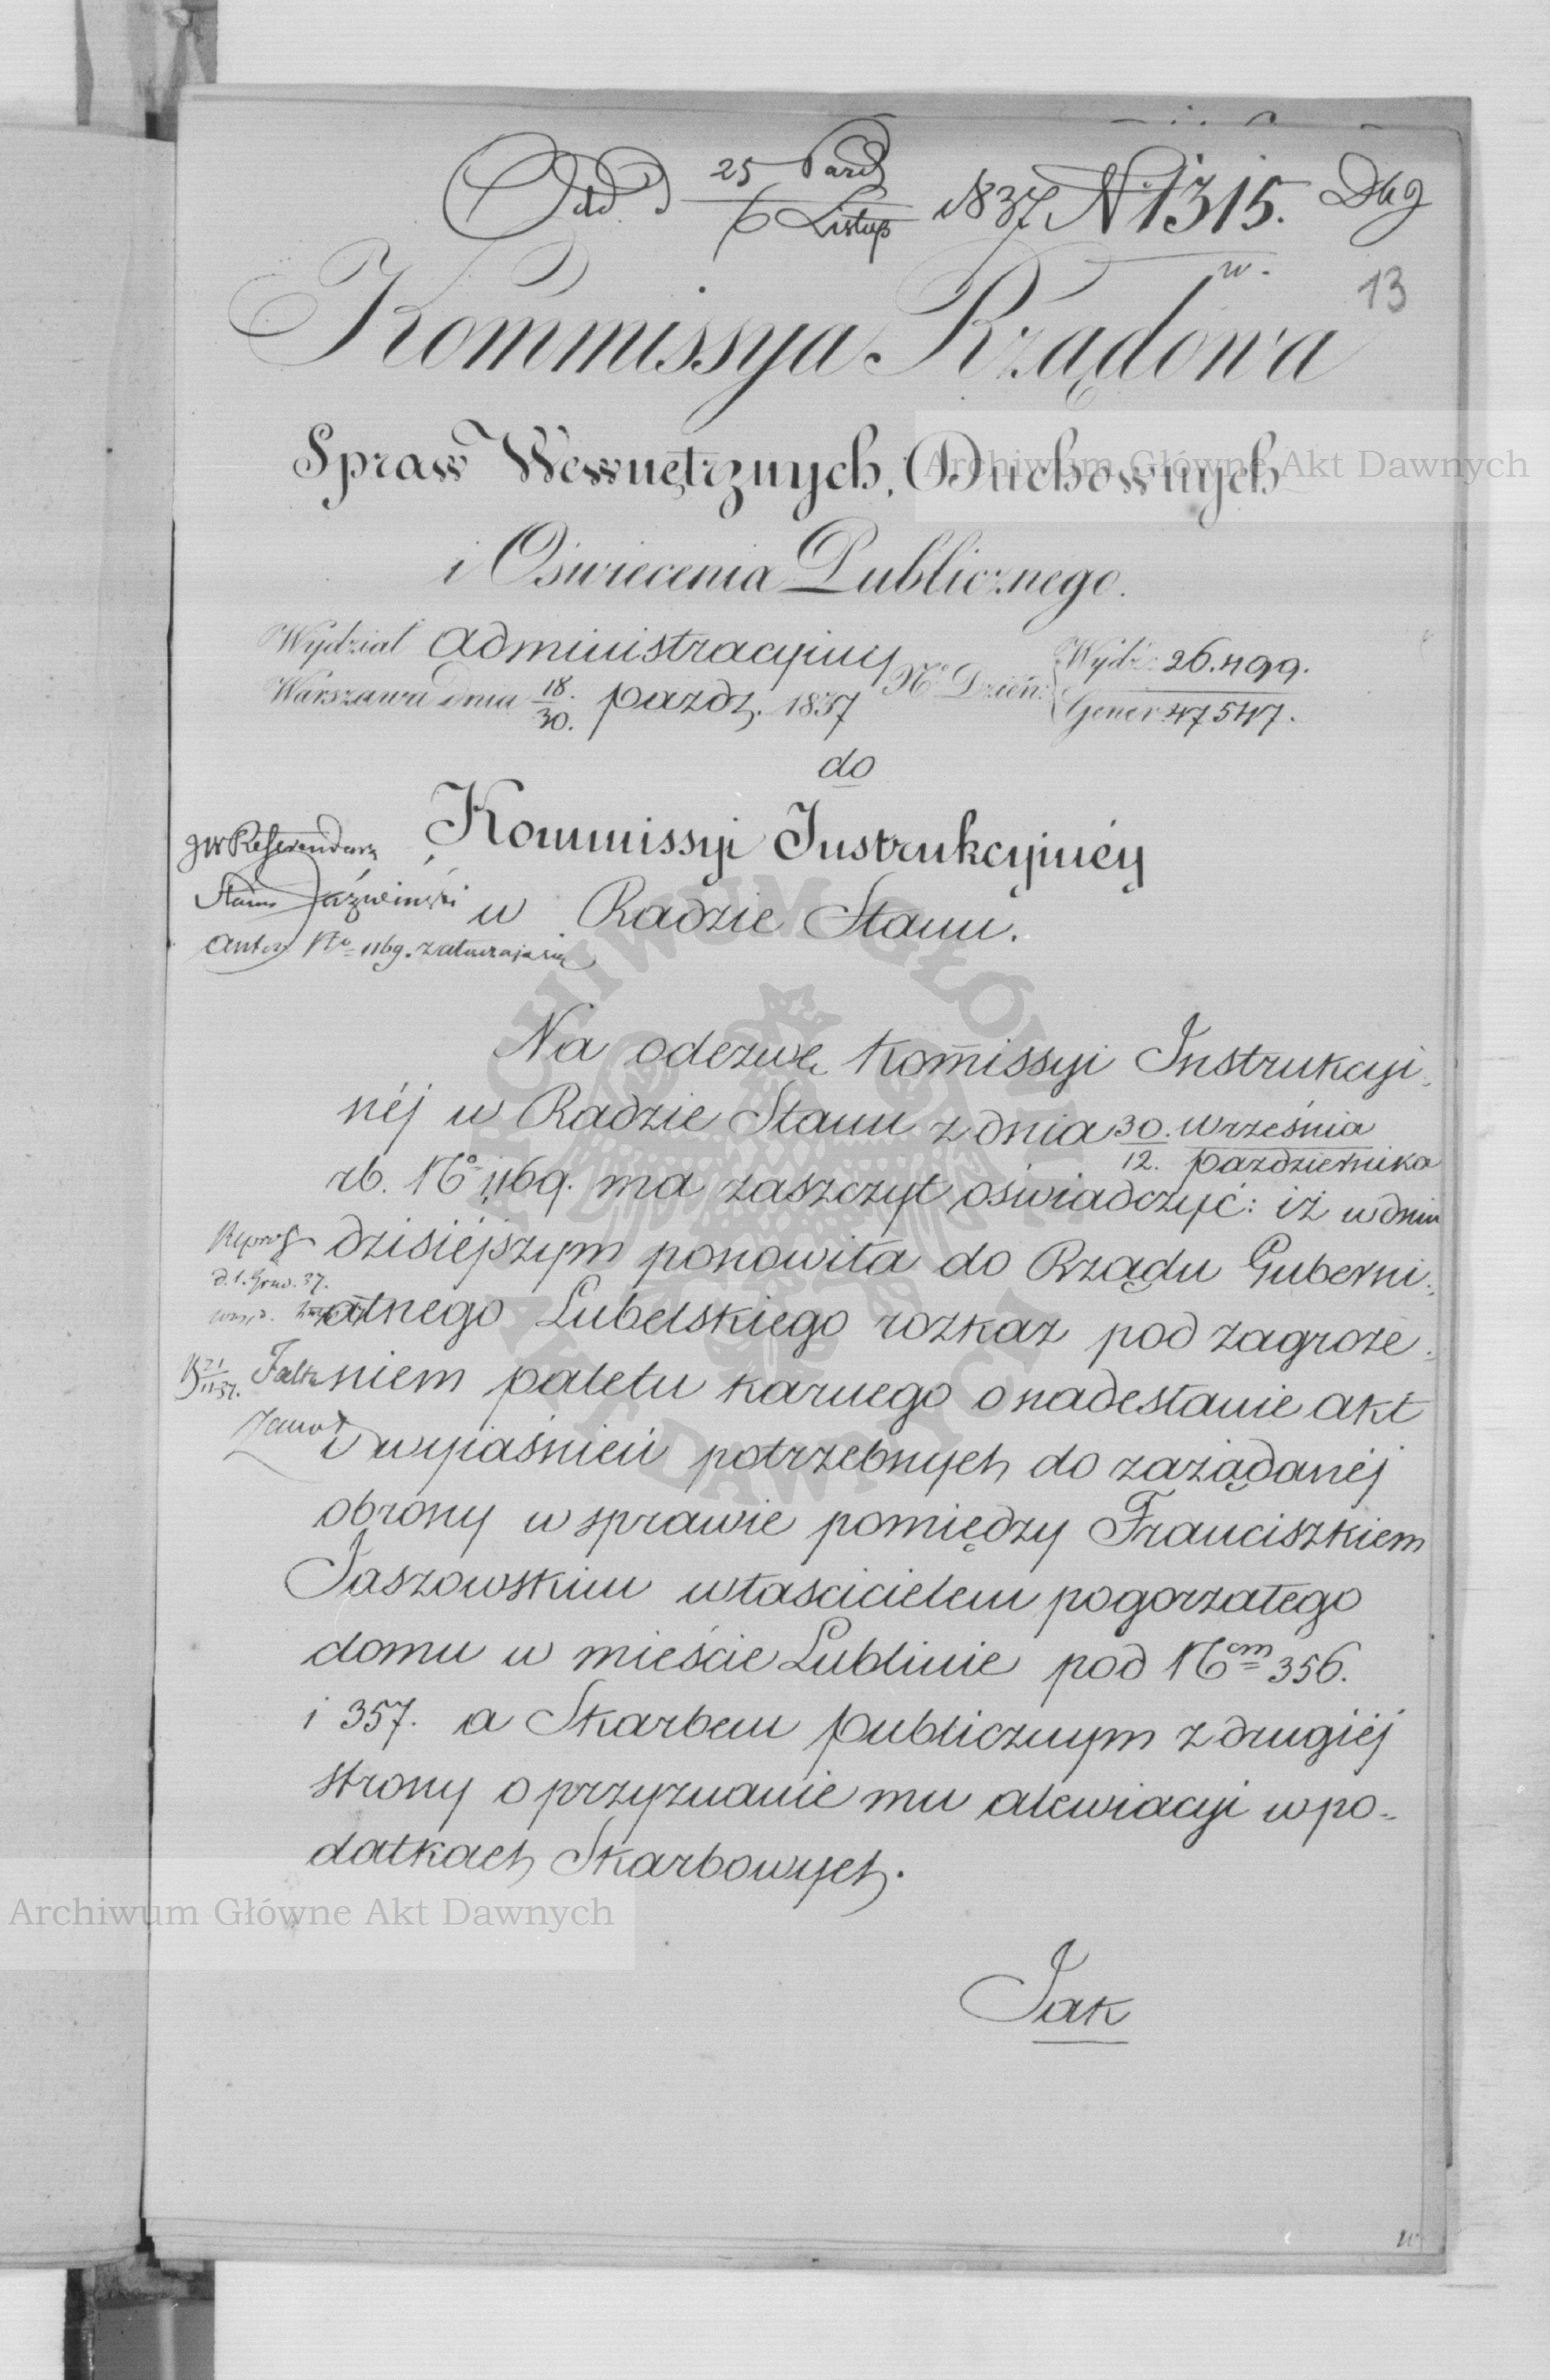 Odd. d 25 Paźd 1837 N 1315. Dkg
6 Listop
w.
13
Kommissya Rządowa
Spraw Wewnętrznych, Duchownych
i Oświecenia Publicznego.
Wydział Administracyiny
Warszawa dnia 18./30. paźdz. 1837
No Dzień: Wydz: 26.499.
Gener: 47547.
do
Kommissyi Instrukcyinéy
w Radzie Stanu.
JW Referendarz
Stanu Jaźwiński
No 1169. załatwia się
Na odezwę Kommissyi Instrukcyi-
néj w Radzie Stanu z dnia 30. Września
12. Października
rb. No 1169. ma zaszczyt oświadczyć: iż w dniu
dzisiéjszym ponowiła do Rządu Guberni-
alnego Lubelskiego rozkaz pod zagroże-
niem paletu karnego o nadesłanie akt
i wyiaśnień potrzebnych do zażądanéj
obrony w sprawie pomiędzy Franciszkiem
Jaszowskim właścicielem pogorzałego
domu w mieście Lublinie pod Ncm 356.
i 357. a Skarbem publicznym z drugiéj
strony o przyznanie mu alewiacyi w po-
datkach Skarbowych.
d. 1. Grud. 37.
21/11 37.
Jak
Archiwum Główne Akt Dawnych
Archiwum Główne Akt Dawnych
ARCHIWUM GŁÓWNE AKT DAWNYCH